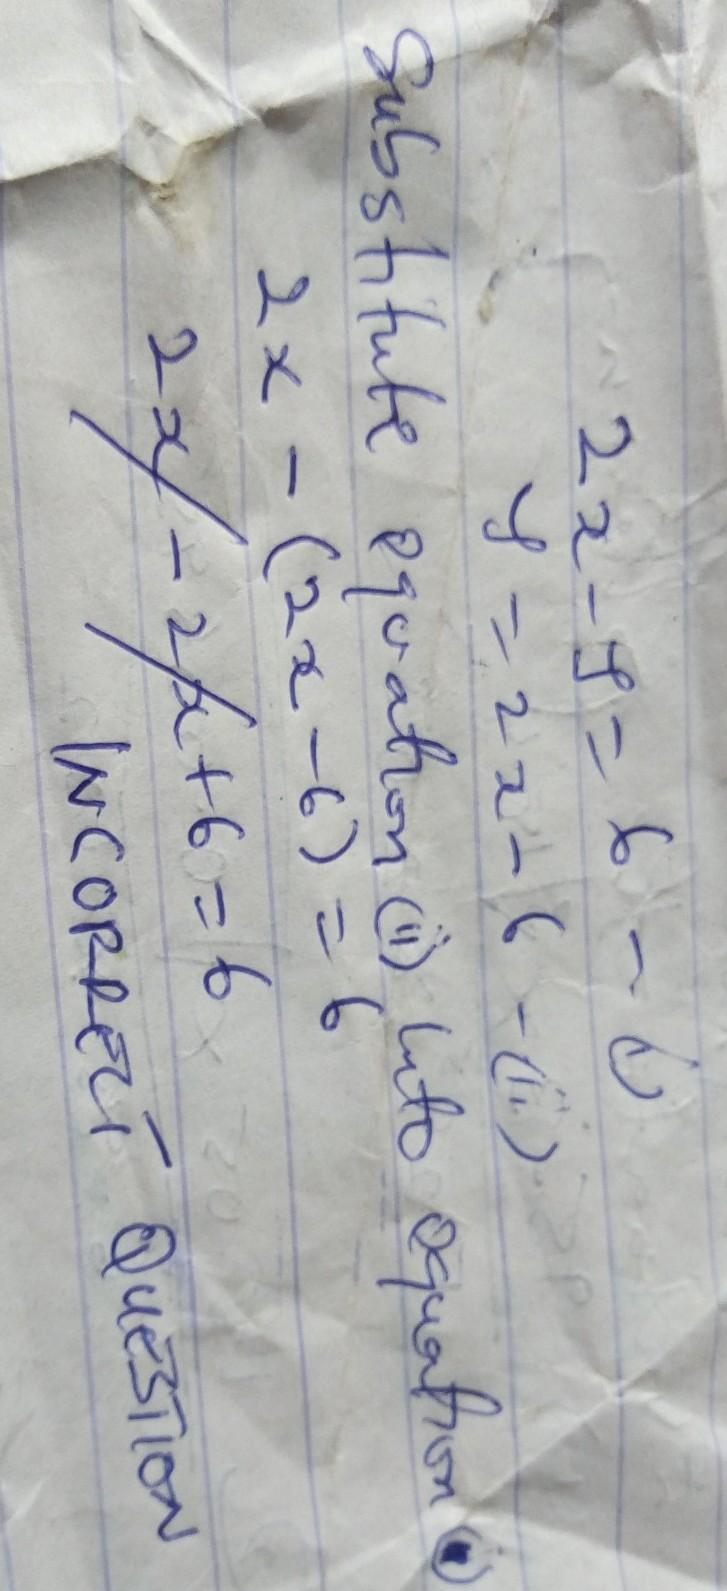 2x - y = 6 - (i)
y = 2x - 6 - (ii)
Substitute equation (ii) into equation (i)
2x - (2x - 6) = 6
2x - 2x + 6 = 6
INCORRECT QUESTION